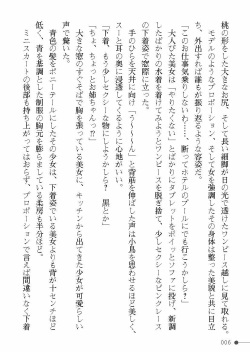 桃の割をした大きなお尻、そして長い細脚が日の光で透けたワンピース越しに見て取れる。
モデルのようなプロポーション、そして女を強調したその身体は整った美貌と共に互
い、外出すれば誰もが振り返るような容姿だ。
「このお仕事気乗りしないわ……。断ってホテルのプールにでも行こうかしら？」
大人びた美女は「やりたくない」とばかりにタブレットをポイッとソファに投げ、新調
したばかりの水着を着けてみようとワンピースを脱ぎ捨て、少しセクシーなピンクレース
の下着姿で窓際に立った。
手のひらを天井に向け「う～～～ん」と背筋を伸ばした声は小鳥を思わせるほど美しく、
スーッと耳の奥に浸透してくるようで心地がいい。
「下着、もう少しセクシーな物にしようかしら？」
「ちょ、ちょっとお姉ちゃんっ？」
大きな窓のすぐそばで胸を張っている美女に、キッチンから出てきた少女が可愛らしい
声で驚いた。
青色の髪をポニーテールにしたその少女は、下着姿でいる美女よりも背が十センチほど
低く、青を基調とした制服の胸元を膨らませている柔房も半分ほど。
ミニスカートの後部も持ち上がってはおらず、プロポーションで言えば間違いなく下着
006